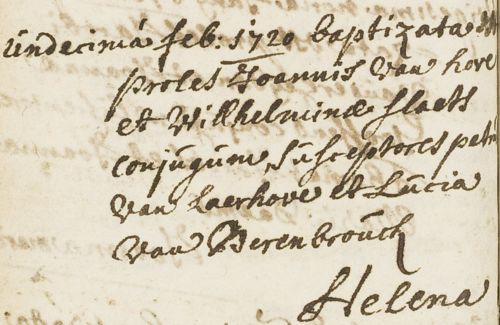 undecimá feb: 1720 baptizata est
proles Joannis van hove
et Wilhelminæ slaets
conjugum, susceptores petrus
van laerhove et Lucia
van Berenbrouck
Helena